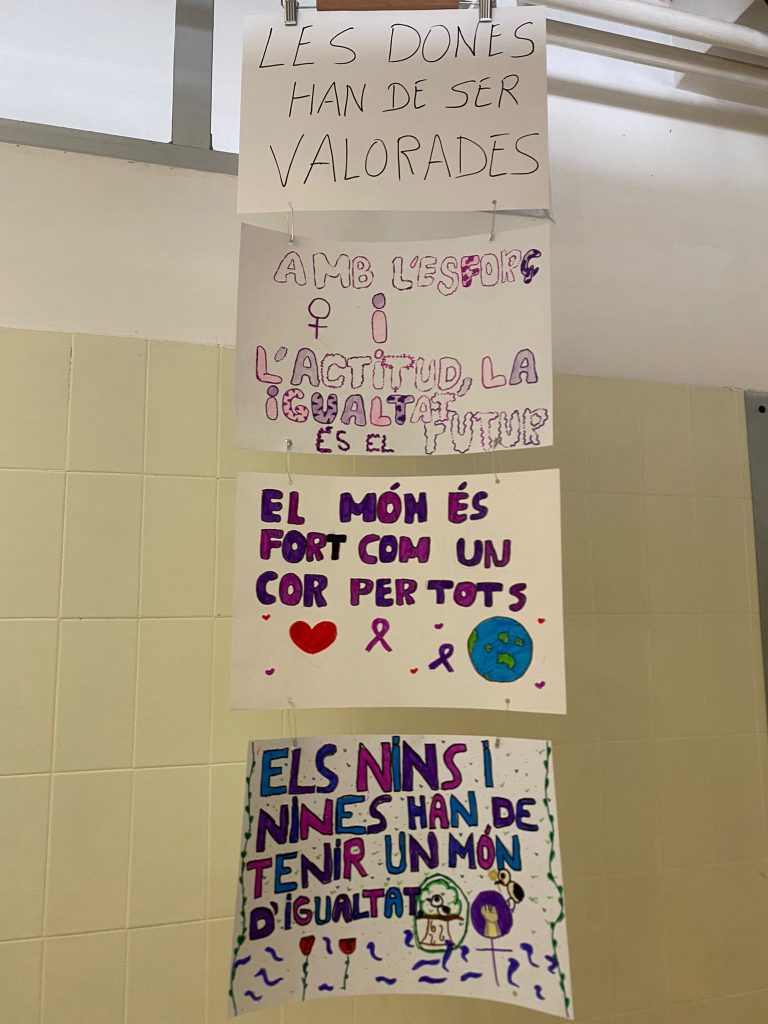 LES DONES
HAN DE SER
VALORADES
AMB L'ESFORÇ
I
L'ACTITUD, LA
IGUALTAT
ÉS EL FUTUR
EL MÓN ÉS
FORT COM UN
COR PER TOTS
ELS NINS I
NINES HAN DE
TENIR UN MÓN
D'IGUALTAT